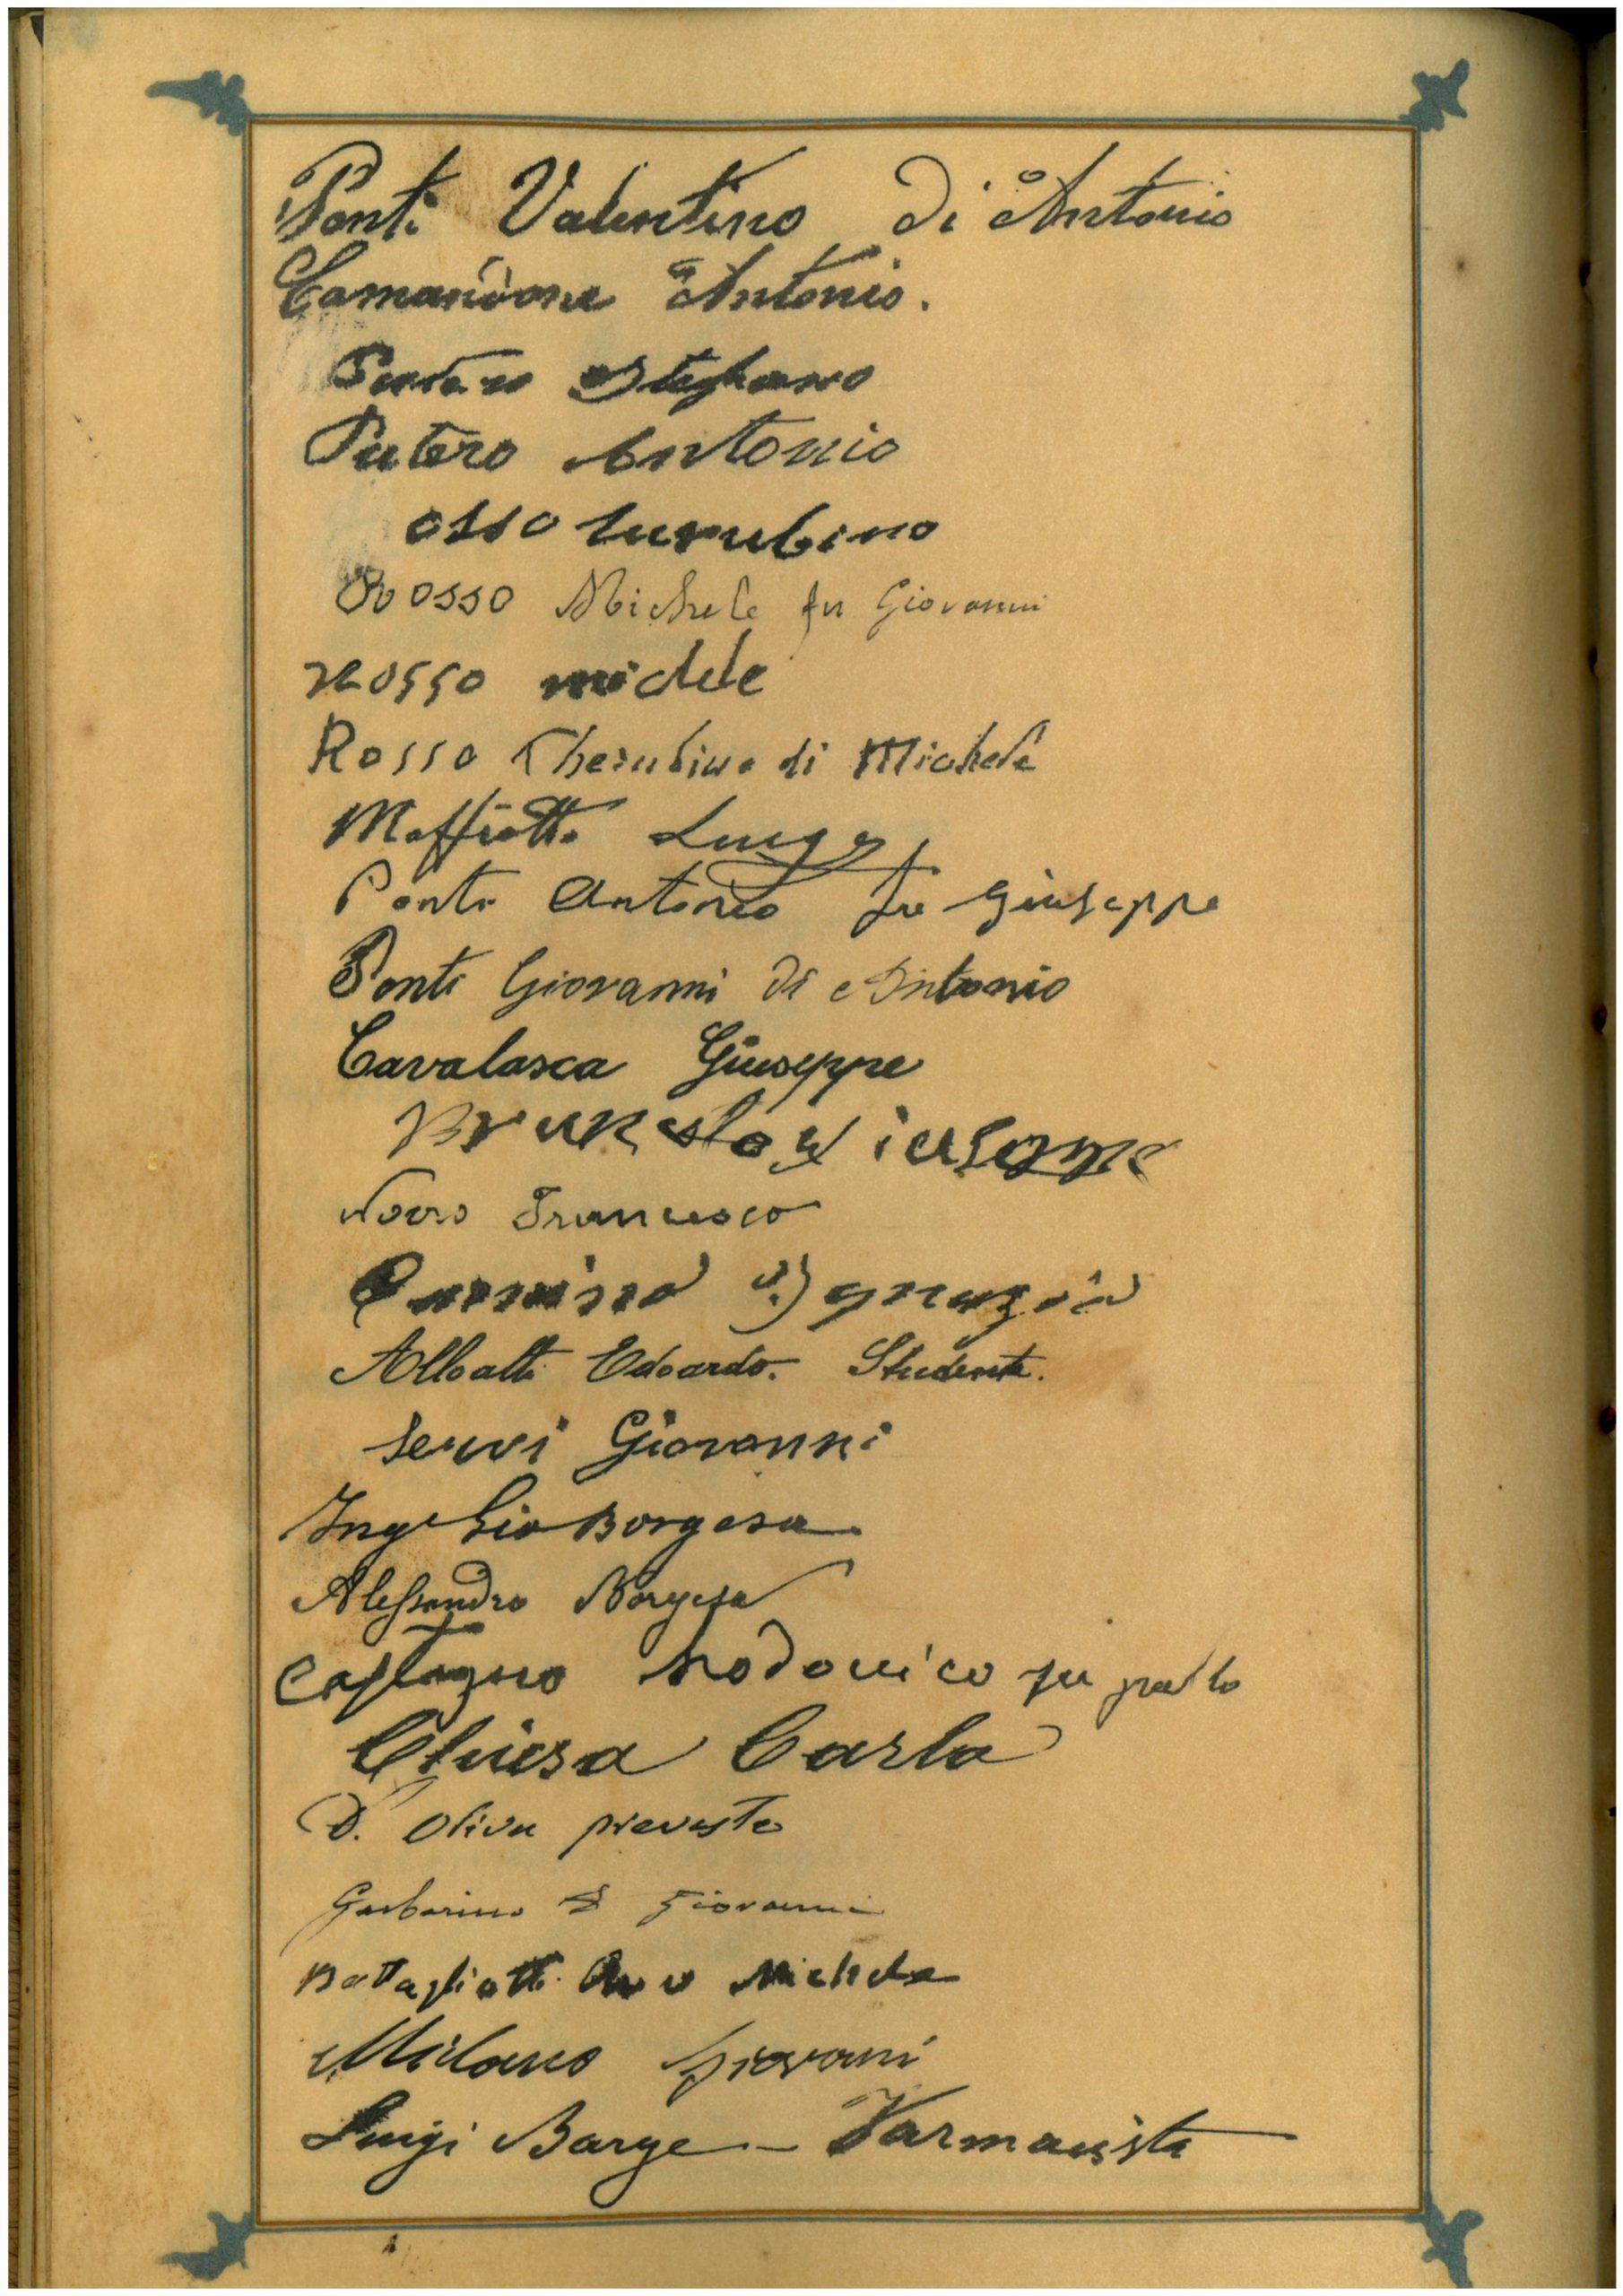 Ponti Valentino di Antonio
Comandone Antonio.
Stefano
Putero Antonio
osso
Rosso Michele fu Giovanni
Rosso michele
Rosso Cherubino di Michele
Maffiotti Luigi
Ponti Antonio fu Giuseppe
Ponti Giovanni di Antonio
Cavalasca Giuseppe
Francesco
Alloatti Edoardo. Studente.
Servi Giovanni
Ing Borgesa
Alessandro Borgesa
Castagno Lodovico fu
Chiesa Carlo
D. Oliva prevosto
Garbarino D Giovanni
Battagliotti Michele
Milano Giovanni
Luigi Barge - Farmacista